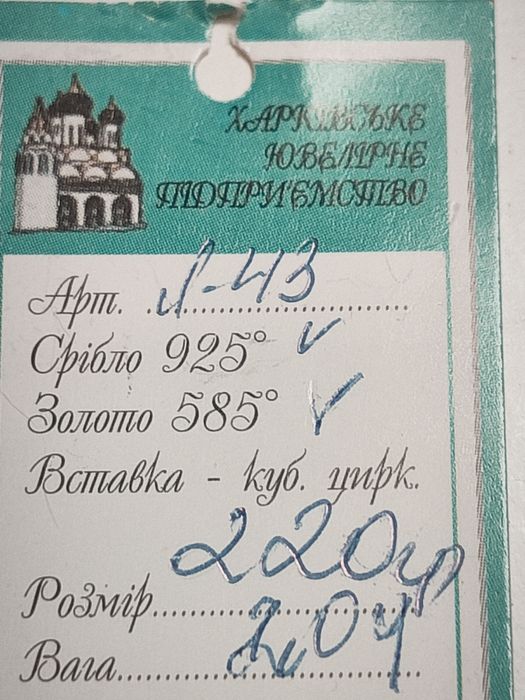 ХАРКІВСЬКЕ
ЮВЕЛІРНЕ
ПІДПРИЄМСТВО
Арт. .............
Срібло 925° ✓
Золото 585° ✓
Вставка - куб. цирк.
220
Розмір...............
Вага................. 2,04